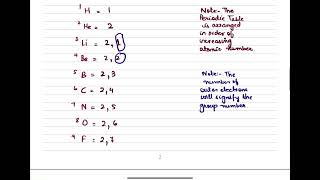 1 H = 1
2 He = 2
3 Li = 2, 1
4 Be = 2, 2
5 B = 2, 3
6 C = 2, 4
7 N = 2, 5
8 O = 2, 6
9 F = 2, 7
Note:- The
Periodic Table
is arranged
in order of
increasing
atomic number.
Note:- The
number of
outer electrons
will signify the
group number
2